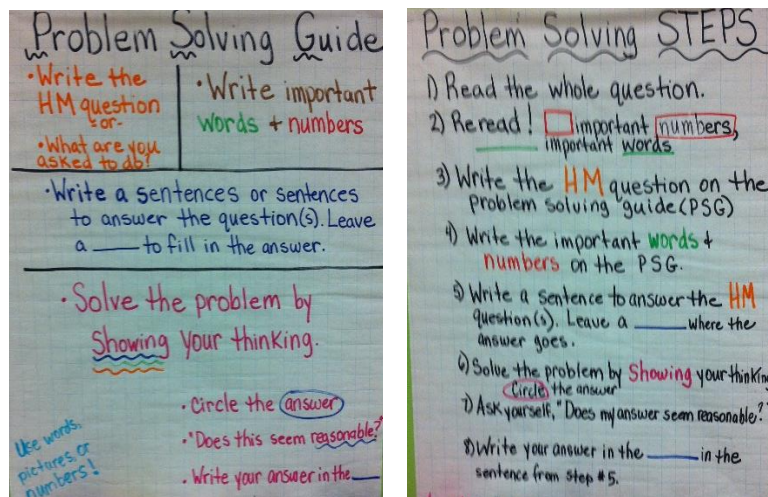 Problem Solving Guide
• Write the
HM question
-or-
• What are you
asked to do?
• Write important
words + numbers
• Write a sentences or sentences
to answer the question(s). Leave
a ____ to fill in the answer.
• Solve the problem by
Showing your thinking.
• Circle the answer
• "Does this seem reasonable?"
• Write your answer in the ____
Use words,
pictures, or
numbers!
Problem Solving STEPS
1) Read the whole question.
2) Reread! important numbers,
____ important words
3) Write the HM question on the
problem solving guide (PSG)
4) Write the important words +
numbers on the PSG.
5) Write a sentence to answer the HM
question(s). Leave a ____ where the
answer goes.
6) Solve the problem by Showing your thinking
Circle the answer
7) Ask yourself, "Does my answer seem reasonable?"
8) Write your answer in the ____ in the
sentence from step #5.